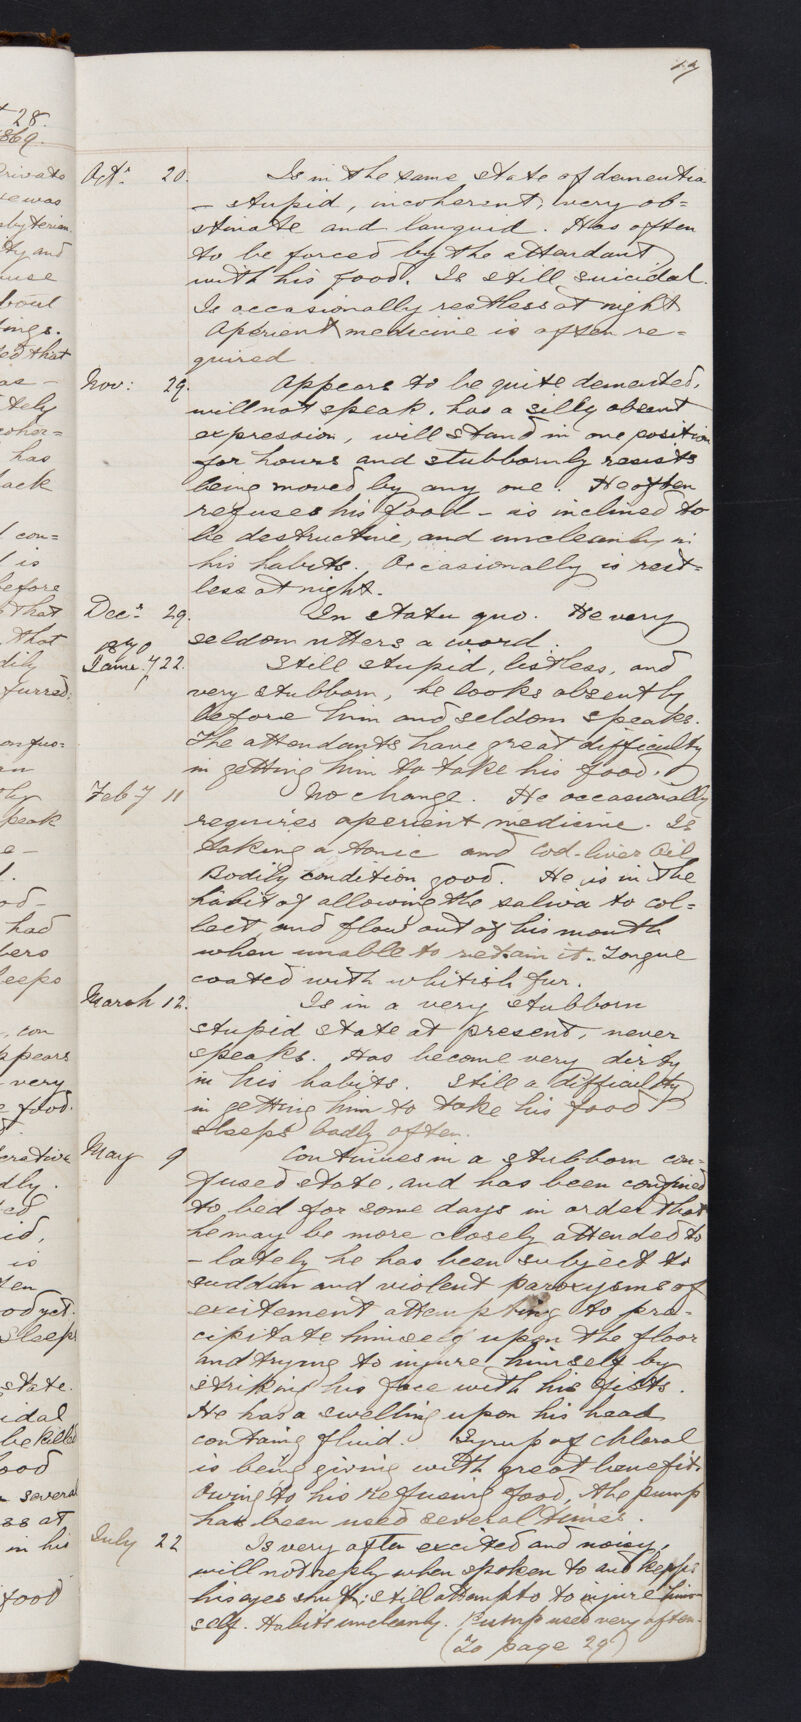 17
Octr. 20. Is in the same state of dementia
- stupid, incoherent, very ob=
stinate and languid. Has often
to be forced by the attendant
with his food. Is still suicidal.
Is occasionally restless at night
Aperient medicine is often re=
quired.
Nov: 29. Appears to be quite demented,
will not speak. has a silly absent
expression, will stand in one position
for hours and stubbornly resists
being moved by any one. He often
refuses his food - is inclined to
be destructive, and uncleanly in
his habits. Occasionally is rest=
less at night.
Decr. 29. In statu quo. He very
seldom utters a word.
1870
Janry 22. Still stupid, listless, and
very stubborn, he looks absently
before him and seldom speaks.
The attendants have great difficulty
in getting him to take his food.
Feby 11 No change. He occasionally
requires aperient medicine. Is
taking a tonic and Cod-liver Oil
Bodily condition good. He is in the
habit of allowing the saliva to col=
lect, and flow out of his mouth
when unable to retain it. Tongue
coated with whitish fur.
March 12. Is in a very stubborn
stupid state at present, never
speaks. Has become very dirty
in his habits. Still a difficulty
in getting him to take his food
sleeps badly often.
May 9 Continues in a stubborn con=
fused state, and has been confined
to bed for some days in order that
he may be more closely attended to
- lately he has been subject to
sudden and violent paroxysms of
excitement attempting to pre=
cipitate himself upon the floor
and trying to injure himself by
striking his face with his fists.
He has a swelling upon his head
containg fluid. Syrup of Chloral
is being giving with great benefit.
Owing to his refusing food, the pump
has been used several times.
July 22 Is very often excited and noisy,
will not reply when spoken to and keeps
his eyes shut; still attempts to injure him=
self. Habits uncleanly. Pump used very often.
(To page 29)